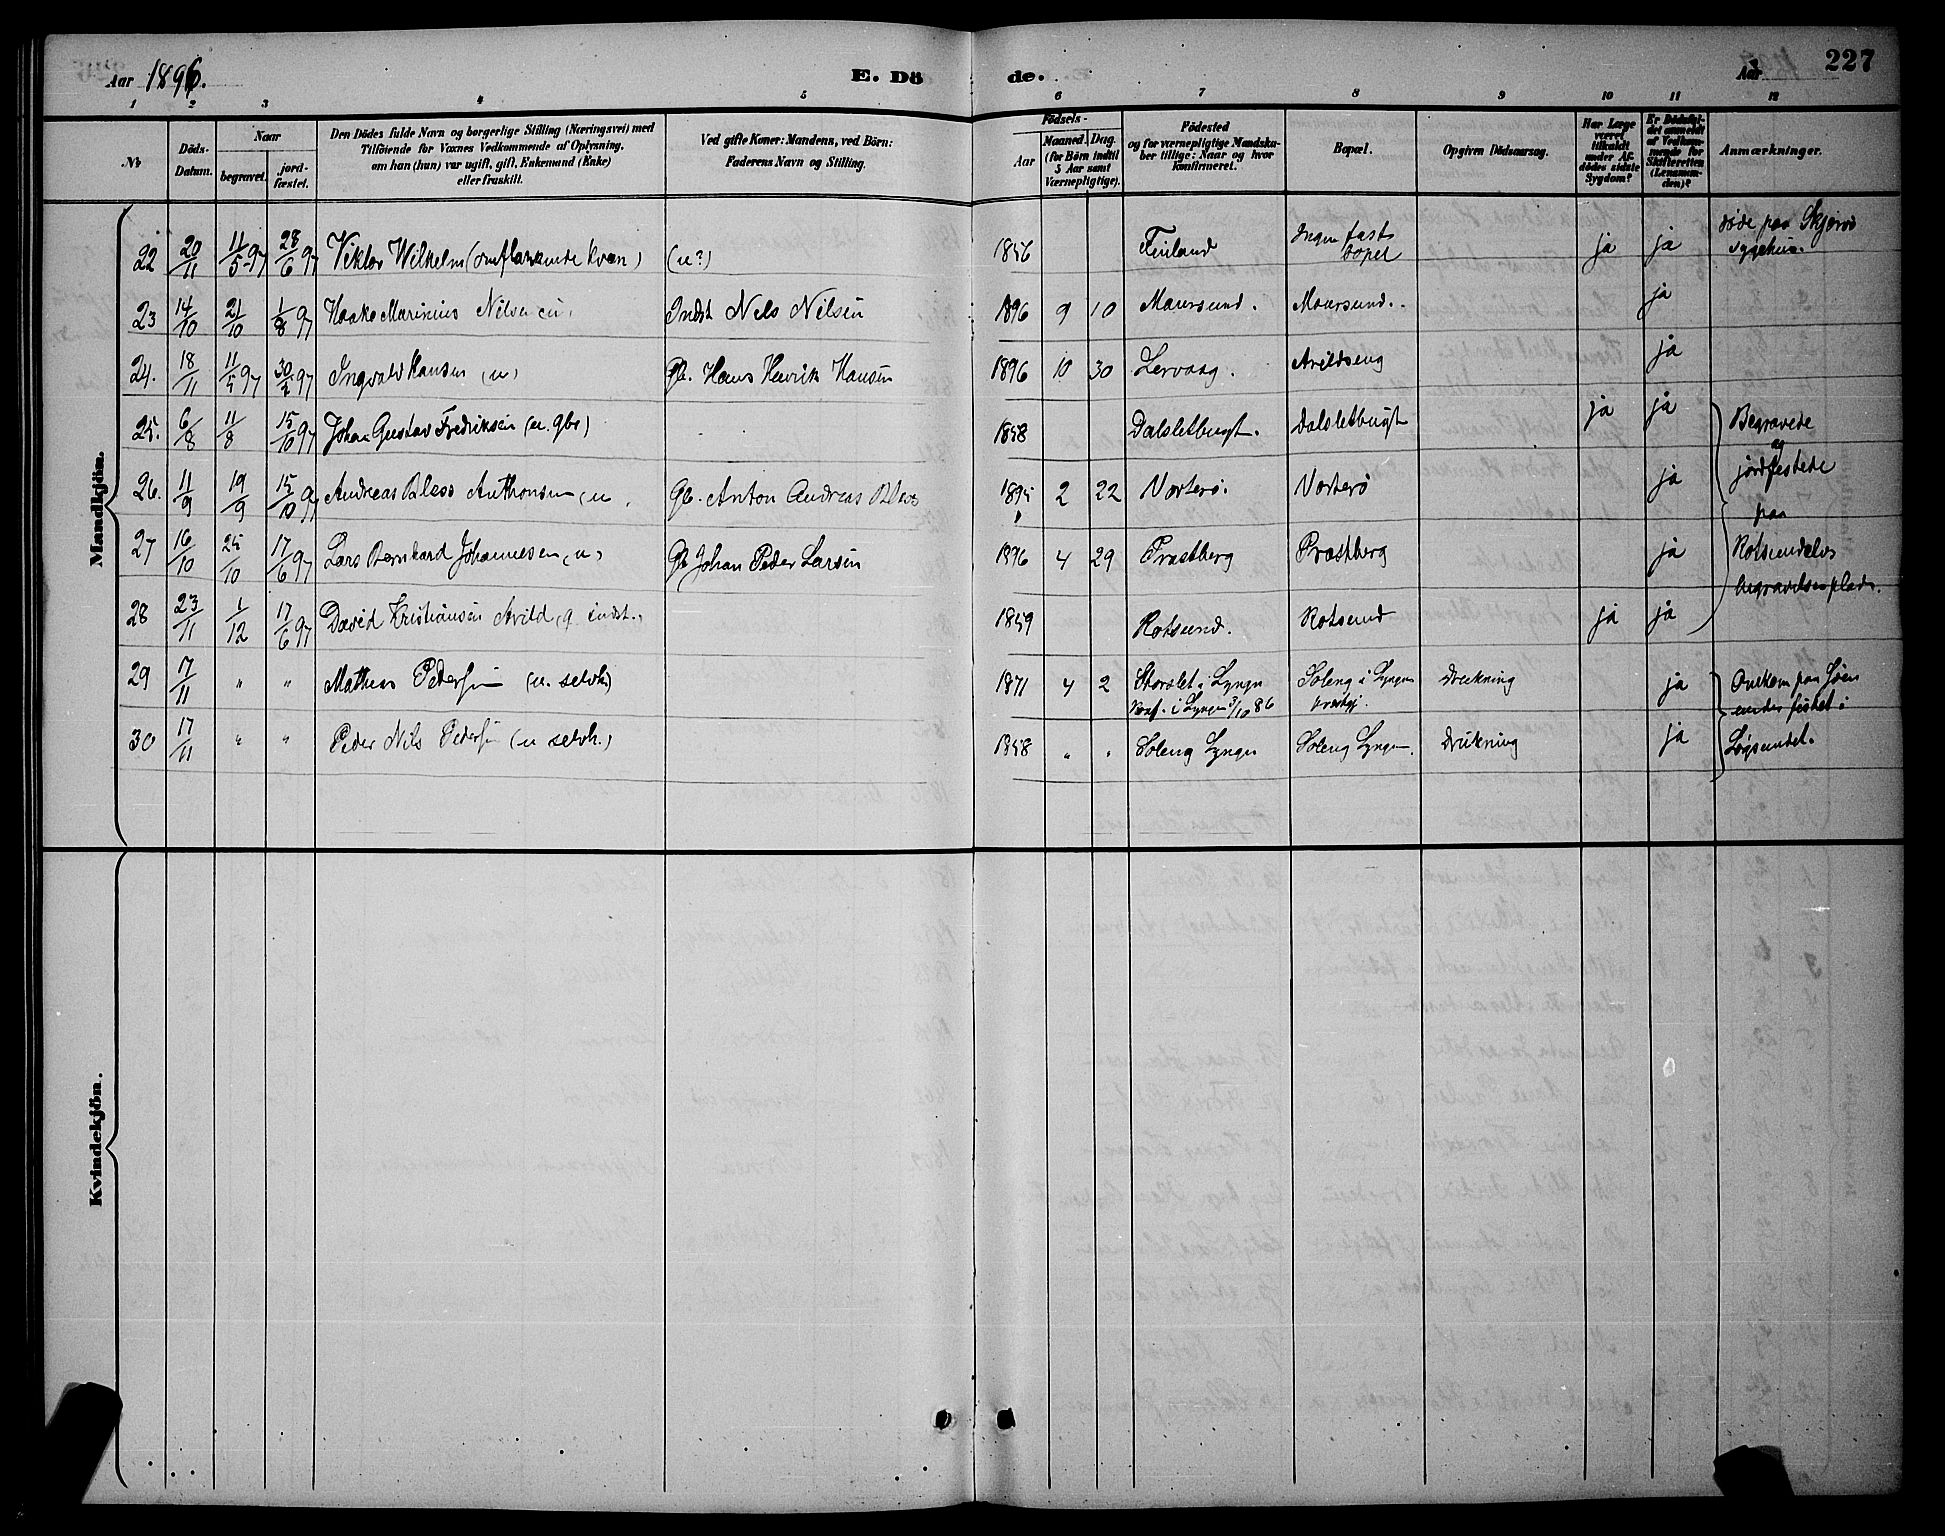 Aar 1896. E. Dö de. Aar 227
1 2 3 4 5 6 7 8 9 10 11 12
No
Döds-
Datum.
Naar
begravet.
jord-
fæstet.
Den Dödes fulde Navn og borgerlige Stilling (Næringsvei) med
Tilföiende for Voxnes Vedkommende af Oplysning,
om han (hun) var ugift, gift, Enkemand (Enke)
eller fraskilt.
Ved gifte Koner: Mandens, ved Börn:
Faderens Navn og Stilling.
Födsels-
Aar
Maaned. Dag.
(for Börn indtil
5 Aar samt
Værnepligtige).
Födested
og for værnepligtige Mandska-
ber tillige: Naar og hvor
konfirmeret.
Bopæl.
Opgiven Dödsaarsag.
Har Læge
været
tilkaldt
under Af-
dödes sidste
Sygdom?
Er Dödsfal-
det anmeldt
af Vedkom-
mende for
Skifteretten
(Lensman-
den)?
Anmærkninger.
Mandkjön.
22 20/11 11/5 97 28/6 97 Viktor Wilhelm (omflakkende kvæn) (u?) 1856 Finland Ingen fast bopel ja ja døde paa Skjervø sygehus.
23 14/10 21/10 1/8 97 Haako Marinius Nilsen (u) Indst Nels Nilsen 1896 9 10 Maursund. Maursund. ja
24. 18/11 11/5 97 30/5 97 Ingvald Hansen (u) Gb. Hans Henrik Hansen 1896 10 30 Lervaag. Avildseng ja
25. 6/8 11/8 15/10 97 Johan Gustav Fredriksen (u. gbr) 1858 Dalsletbugt. Dalsletbugt ja ja Begravede
26. 11/9 19/9 15/10 97 Andreas Bless Anthonsen (u. Gb. Anton Andreas Bless 1895 2 22 Vorterø. Vorterø ja og jordfestede paa
27 16/10 25/10 17/6 97 Lars Bernhard Johannesen (u) Gb Johan Peder Larsen 1896 4 29 Præstberg Præstberg ja Rotsundelvs begravelsesplads.
28 23/11 1/12 17/6 97 David Kristiansen Avild (g. indst.) 1859 Rotsund. Rotsund ja ja
29 17/11 " " Mathias Pedersen (u. selvh) 1871 4 2 Storslet i Lyngen Konf. i Lyngen 3/10 86 Soleng i Lyngen prestgj. Drukning ja Omkom paa Søen
30 17/11 " " Peder Nils Pedersen (u selvh.) 1858 " " Soleng Lyngen Soleng Lyngen. Drukning ja under fisket i Løgsundet.
Kvindekjön.